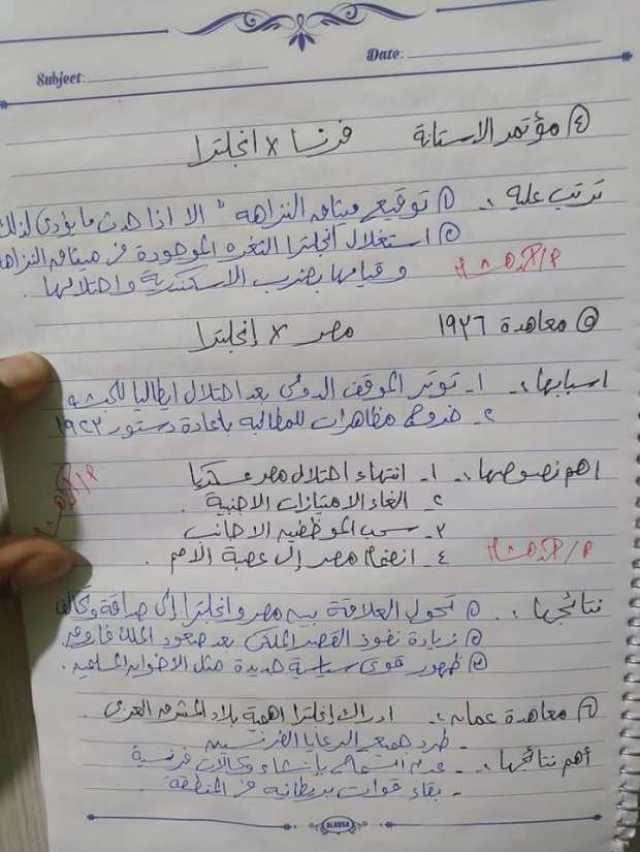 Date:
Subject:
④ مؤتمر الاستانة فرنسا × انجلترا
ترتب عليه :- ① توقيع ميثاق النزاهه " الا اذا حدث ما يؤدى لذلك
② استغلال انجلترا الثغره الموجودة فى ميثاق النزاهة
وقيامها بضرب الاسكندرية واحتلالها .
⑤ معاهدة ١٩٣٦ مصر × إنجلترا
اسبابها :- ١- توتر الموقف الدولى بعد احتلال ايطاليا للحبشه
٢- خروج مظاهرات للمطالبه باعادة دستور ١٩٢٣
اهم نصوصها :- ١- انتهاء احتلال مصر عسكريا
٢- الغاء الامتيازات الاجنبية .
٣- سحب الموظفين الاجانب
٤- انضمام مصر إلى عصبة الامم .
نتائجها :- ① تحول العلاقة بين مصر وانجلترا إلى صداقة وتحالف
② زيادة نفوذ القصر الملكى بعد صعود الملك فاروق
③ ظهور قوى سياسية جديدة مثل الاخوان المسلمين .
⑥ معاهدة عمان :- ادراك إنجلترا اهمية بلاد المشرق العربى .
- طرد جميع الرعايا الفرنسيين
أهم نتائجها :- - عدم السماح بإنشاء وكالات فرنسية
- بقاء قوات بريطانيه فى المنطقة .